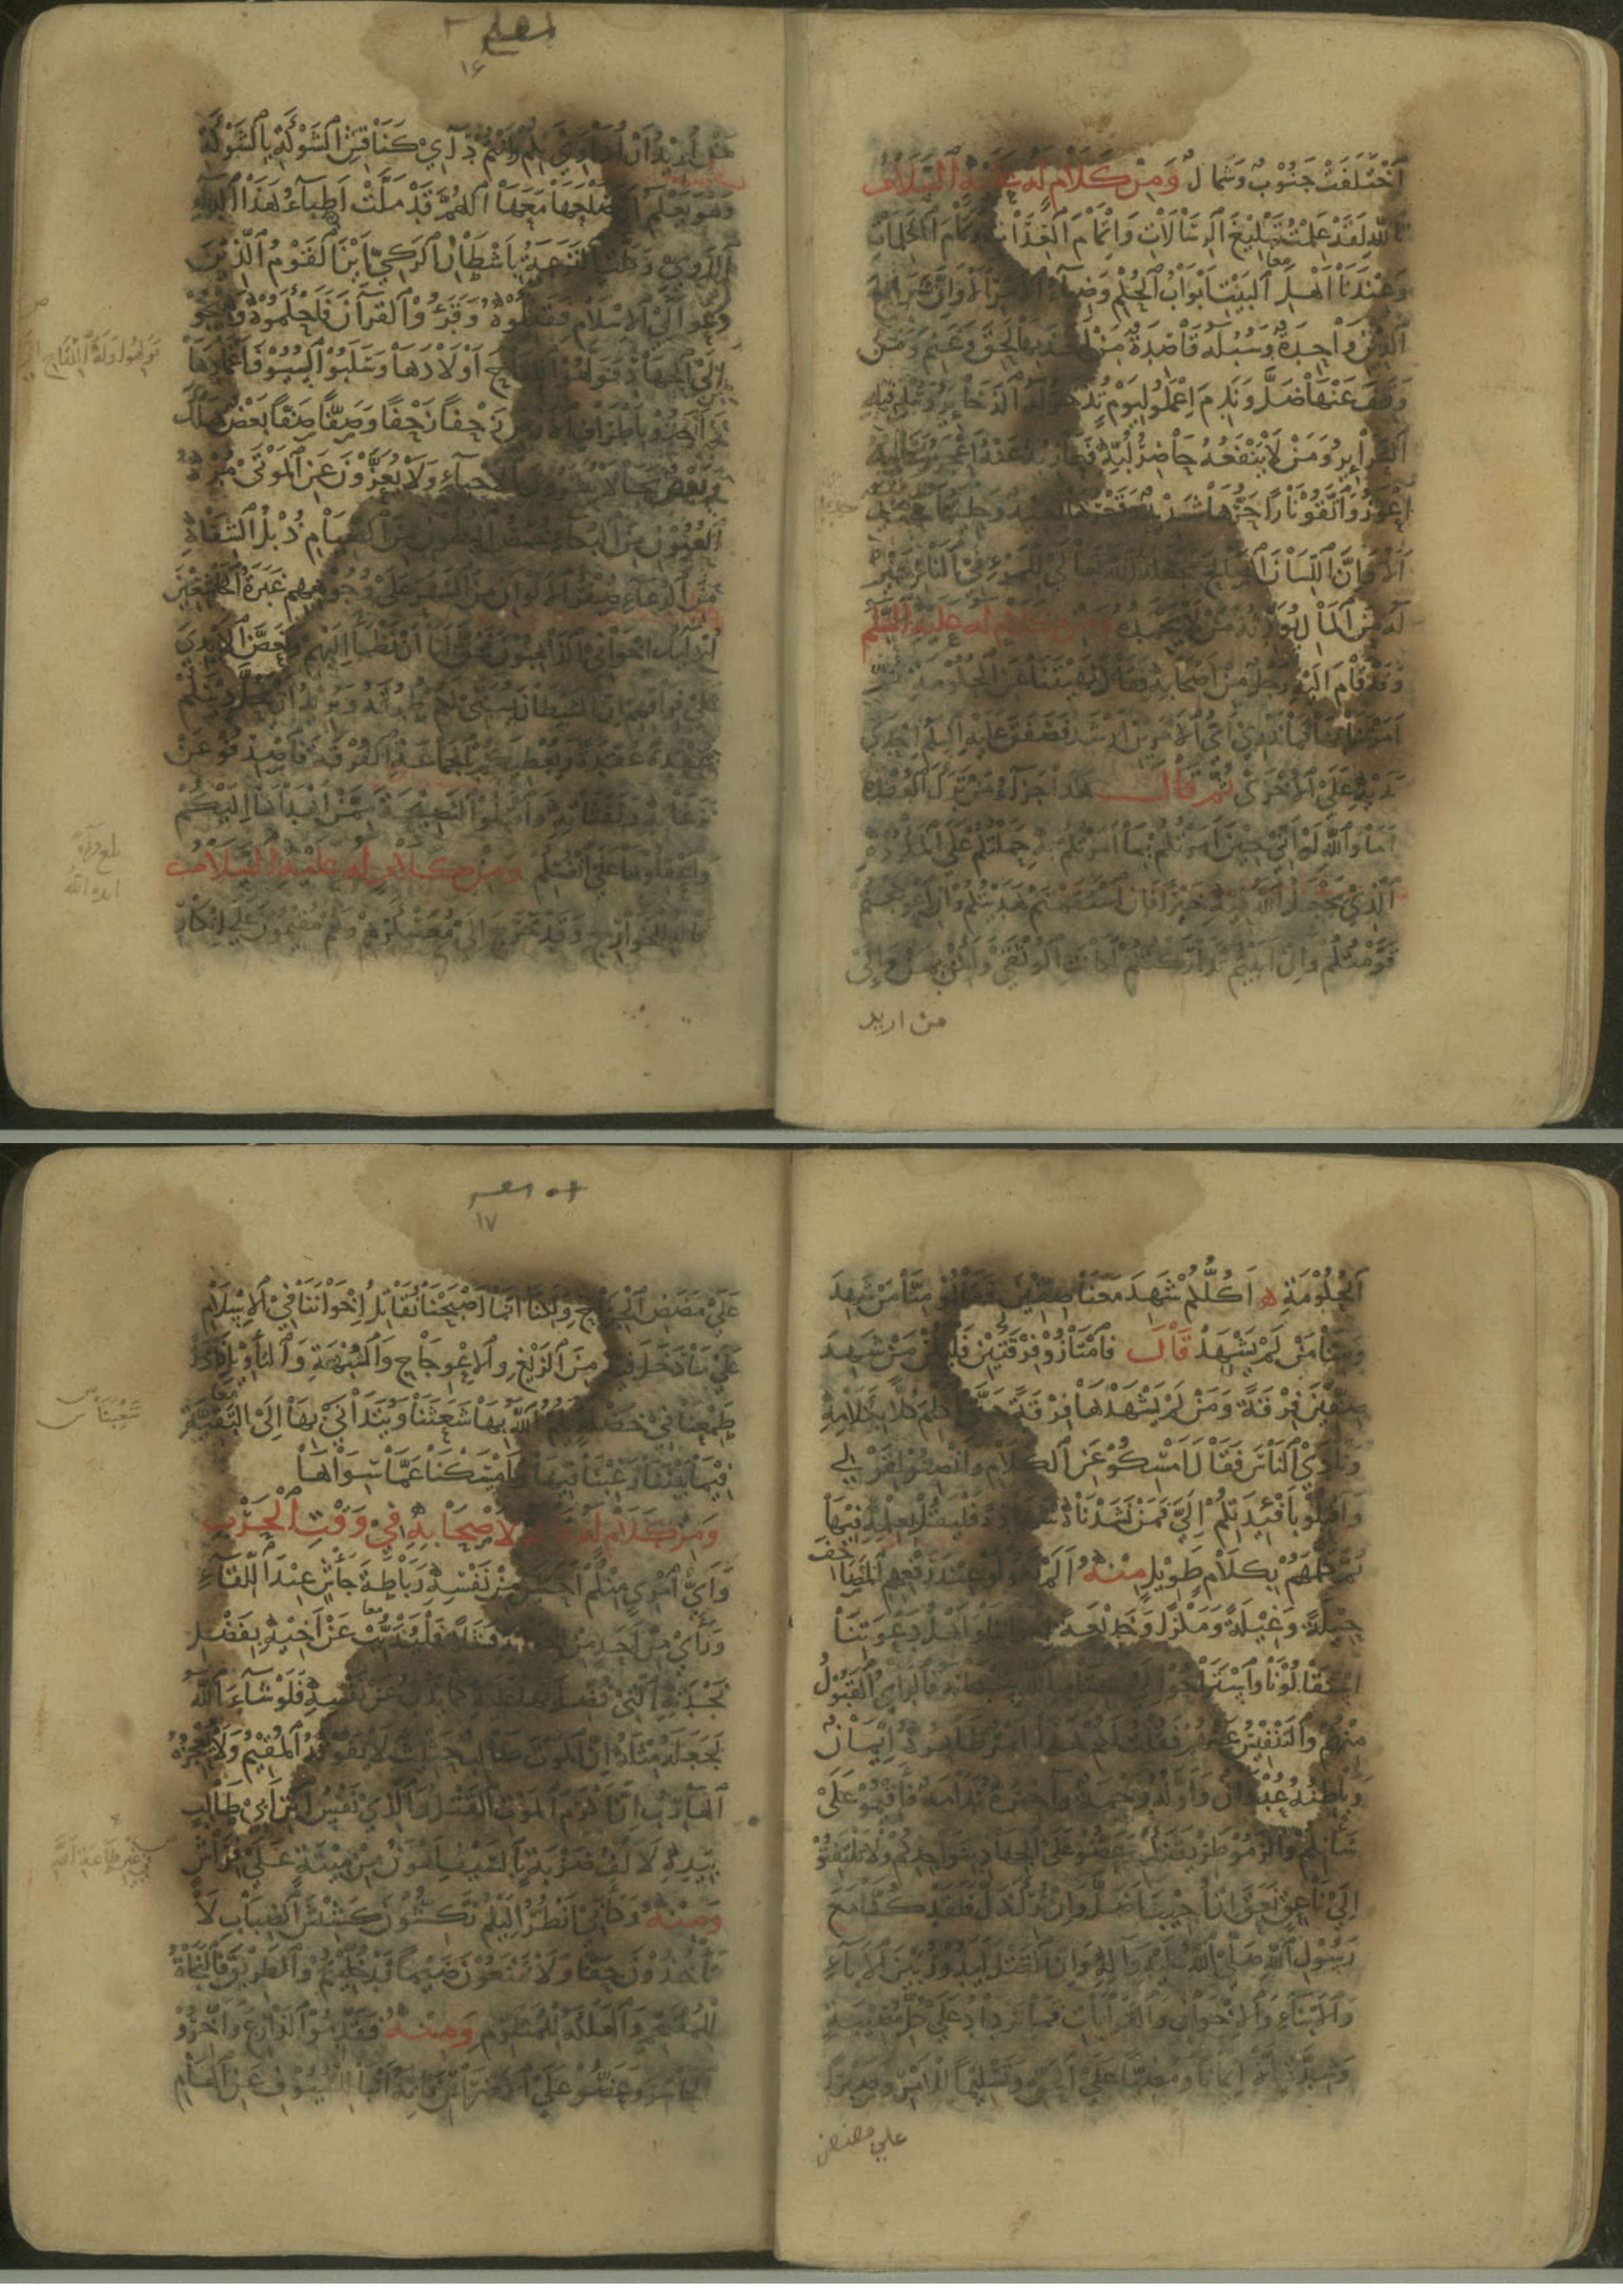 اَخْتَلَفَتْ جَنُوْبٌ وَشَمَالٌ وَمِنْ كَلَامٍ لَهُ عَلَيْهِ السَّلَامُ
تَاللهِ لَقَدْ عَلِمْتُ تَبْلِيْغَ الرِّسَالَاتِ وَاِتْمَامَ الْعِدَاتِ وَتَمَامَ الْكَلِمَاتِ
وَعِنْدَنَا اَهْلَ الْبَيْتِ اَبْوَابُ الْحُكْمِ وَضِيَاءُ الْاَمْرِ اَلَا وَاِنَّ شَرَائِعَ
الدِّيْنِ وَاحِدَةٌ وَسُبُلَهُ قَاصِدَةٌ مَنْ اَخَذَ بِهَا لَحِقَ وَغَنِمَ وَمَنْ
وَقَفَ عَنْهَا ضَلَّ وَنَدِمَ اِعْمَلُوا لِيَوْمٍ تُذْخَرُ لَهُ الذَّخَائِرُ وَتُبْلَى فِيْهِ
السَّرَائِرُ وَمَنْ لَا يَنْفَعُهُ حَاضِرُ لُبِّهِ فَعَازِبُهُ عَنْهُ اَعْجَزُ وَغَائِبُهُ
اَعْوَزُ وَاتَّقُوْا نَارًا حَرُّهَا شَدِيْدٌ وَقَعْرُهَا بَعِيْدٌ وَحِلْيَتُهَا حَدِيْدٌ
اَلَا وَاِنَّ اللِّسَانَ الصَّالِحَ يَجْعَلُهُ اللهُ تَعَالَى لِلْمَرْءِ فِي النَّاسِ خَيْرٌ
لَهُ مِنَ الْمَالِ يُوْرِثُهُ مَنْ لَا يَحْمَدُهُ وَمِنْ كَلَامٍ لَهُ عَلَيْهِ السَّلَم
وَقَدْ قَامَ اِلَيْهِ رَجُلٌ مِنْ اَصْحَابِهِ فَقَالَ نَهَيْتَنَا عَنِ الْحُكُوْمَةِ ثُمَّ
اَمَرْتَنَا بِهَا فَمَا نَدْرِيْ اَيُّ الْاَمْرَيْنِ اَرْشَدُ فَصَفَقَ عَلَيْهِ السَّلَم اِحْدَى
يَدَيْهِ عَلَى الْاُخْرَى ثُمَّ قَالَ هَذَا جَزَاءُ مَنْ تَرَكَ الْعُقْدَةَ
اَمَا وَاللهِ لَوْ اَنِّيْ حِيْنَ اَمَرْتُكُمْ بِمَا اَمَرْتُكُمْ بِهِ حَمَلْتُكُمْ عَلَى الْمَكْرُوْهِ
الَّذِيْ يَجْعَلُ اللهُ فِيْهِ خَيْرًا فَاِنِ اسْتَقَمْتُمْ هَدَيْتُكُمْ وَاِنِ اعْوَجَجْتُمْ
قَوَّمْتُكُمْ وَاِنْ اَبَيْتُمْ تَدَارَكْتُكُمْ لَكَانَتِ الْوُثْقَى وَلَكِنْ بِمَنْ وَاِلَى
من اريد
١٦
مَنْ اُرِيْدُ اَنْ اُدَاوِيَ بِكُمْ وَاَنْتُمْ دَائِيْ كَنَاقِشِ الشَّوْكَةِ بِالشَّوْكَةِ
وَهُوَ يَعْلَمُ اَنَّ ضَلْعَهَا مَعَهَا اَللّٰهُمَّ قَدْ مَلَّتْ اَطِبَّاءُ هَذَا الدَّاءِ
الدَّوِيِّ وَكَلَّتِ النَّزَعَةُ بِاَشْطَانِ الرَّكِيِّ اَيْنَ الْقَوْمُ الَّذِيْنَ
دُعُوْا اِلَى الْاِسْلَامِ فَقَبِلُوْهُ وَقَرَؤُا الْقُرْآنَ فَاَحْكَمُوْهُ وَهِيْجُوْا
اِلَى الْجِهَادِ فَوَلَّهُوا اللِّقَاحَ اَوْلَادَهَا وَسَلَبُوا السُّيُوْفَ اَغْمَادَهَا
وَاَخَذُوْا بِاَطْرَافِ الْاَرْضِ زَحْفًا زَحْفًا وَصَفًّا صَفًّا بَعْضٌ هَلَكَ
وَبَعْضٌ نَجَا لَا يُبَشَّرُوْنَ بِالْاَحْيَاءِ وَلَا يُعَزَّوْنَ عَنِ الْمَوْتَى مُرْهُ
الْعُيُوْنِ مِنَ الْبُكَاءِ خُمْصُ الْبُطُوْنِ مِنَ الصِّيَامِ ذُبْلُ الشِّفَاهِ
مِنَ الدُّعَاءِ صُفْرُ الْاَلْوَانِ مِنَ السَّهَرِ عَلَى وُجُوْهِهِمْ غَبَرَةُ الْخَاشِعِيْنَ
اُولٰئِكَ اِخْوَانِيَ الذَّاهِبُوْنَ فَحَقَّ لَنَا اَنْ نَظْمَأَ اِلَيْهِمْ وَنَعَضَّ الْاَيْدِيَ
عَلَى فِرَاقِهِمْ اِنَّ الشَّيْطَانَ يُسَنِّيْ لَكُمْ طُرُقَهُ وَيُرِيْدُ اَنْ يَحُلَّ دِيْنَكُمْ
عُقْدَةً عُقْدَةً وَيُعْطِيَكُمْ بِالْجَمَاعَةِ الْفُرْقَةَ فَاصْدِفُوْا عَنْ
نَزَغَاتِهِ وَنَفَثَاتِهِ وَاقْبَلُوا النَّصِيْحَةَ مِمَّنْ اَهْدَاهَا اِلَيْكُمْ
وَاعْقِلُوْهَا عَلَى اَنْفُسِكُمْ وَمِنْ كَلَامٍ لَهُ عَلَيْهِ السَّلَامُ
قَالَهُ لِلْخَوَارِجِ وَقَدْ خَرَجَ اِلَى مُعَسْكَرِهِمْ وَهُمْ مُقِيْمُوْنَ عَلَى اِنْكَارِ
اَلْحُكُوْمَةِ اَكُلُّكُمْ شَهِدَ مَعَنَا صِفِّيْنَ فَقَالُوْا مِنَّا مَنْ شَهِدَ
وَمِنَّا مَنْ لَمْ يَشْهَدْ قَالَ فَامْتَازُوْا فِرْقَتَيْنِ فَلْيَكُنْ مَنْ شَهِدَ
صِفِّيْنَ فِرْقَةً وَمَنْ لَمْ يَشْهَدْهَا فِرْقَةً حَتَّى اُكَلِّمَ كُلًّا بِكَلَامِهِ
وَنَادَى النَّاسَ فَقَالَ اَمْسِكُوْا عَنِ الْكَلَامِ وَاَنْصِتُوْا لِقَوْلِي
وَاَقْبِلُوْا بِاَفْئِدَتِكُمْ اِلَيَّ فَمَنْ نَشَدْنَاهُ شَهَادَةً فَلْيَقُلْ بِعِلْمِهِ فِيْهَا
ثُمَّ كَلَّمَهُمْ بِكَلَامٍ طَوِيْلٍ مِنْهُ اَلَمْ تَقُوْلُوْا عِنْدَ رَفْعِهِمُ الْمَصَاحِفَ
حِيْلَةً وَغِيْلَةً وَمَكْرًا وَخَدِيْعَةً اِخْوَانُنَا وَاَهْلُ دَعْوَتِنَا
اسْتَقَالُوْنَا وَاسْتَرَاحُوْا اِلَى كِتَابِ اللهِ سُبْحَانَهُ فَالرَّأْيُ الْقَبُوْلُ
مِنْهُمْ وَالتَّنْفِيْسُ عَنْهُمْ فَقُلْتُ لَكُمْ هَذَا اَمْرٌ ظَاهِرُهُ اِيْمَانٌ
وَبَاطِنُهُ عُدْوَانٌ وَاَوَّلُهُ رَحْمَةٌ وَآخِرُهُ نَدَامَةٌ فَاَقِيْمُوْا عَلَى
شَأْنِكُمْ وَالْزَمُوْا طَرِيْقَتَكُمْ وَعَضُّوْا عَلَى الْجِهَادِ بِنَوَاجِذِكُمْ وَلَا تَلْتَفِتُوْا
اِلَى نَاعِقٍ نَعَقَ اِنْ اُجِيْبَ اَضَلَّ وَاِنْ تُرِكَ ذَلَّ فَلَقَدْ كُنَّا مَعَ
رَسُوْلِ اللهِ صَلَّى اللهُ عَلَيْهِ وَآلِهِ وَاِنَّ الْقَتْلَ لَيَدُوْرُ بَيْنَ الْآبَاءِ
وَالْاَبْنَاءِ وَالْاِخْوَانِ وَالْقَرَابَاتِ فَمَا نَزْدَادُ عَلَى كُلِّ مُصِيْبَةٍ
وَشِدَّةٍ اِلَّا اِيْمَانًا وَمُضِيًّا عَلَى الْحَقِّ وَتَسْلِيْمًا لِلْاَمْرِ وَصَبْرًا
على مضض
١٧
عَلَى مَضَضِ الْجِرَاحِ وَلَكِنَّا اِنَّمَا اَصْبَحْنَا نُقَاتِلُ اِخْوَانَنَا فِي الْاِسْلَامِ
عَلَى مَا دَخَلَ فِيْهِ مِنَ الزَّيْغِ وَالْاِعْوِجَاجِ وَالشُّبْهَةِ وَالتَّأْوِيْلِ فَاِذَا
طَمِعْنَا فِيْ خَصْلَةٍ يَلُمُّ اللهُ بِهَا شَعَثَنَا وَنَتَدَانَى بِهَا اِلَى الْبَقِيَّةِ
فِيْمَا بَيْنَنَا رَغِبْنَا فِيْهَا وَاَمْسَكْنَا عَمَّا سِوَاهَا
وَمِنْ كَلَامٍ لَهُ قَالَهُ لِاَصْحَابِهِ فِيْ وَقْتِ الْحَرْبِ
وَاَيُّ امْرِئٍ مِنْكُمْ اَحَسَّ مِنْ نَفْسِهِ رَبَاطَةَ جَأْشٍ عِنْدَ اللِّقَاءِ
وَرَأَى مِنْ اَحَدٍ مِنْ اِخْوَانِهِ فَشَلًا فَلْيَذُبَّ عَنْ اَخِيْهِ بِفَضْلِ
نَجْدَتِهِ الَّتِيْ فُضِّلَ بِهَا عَلَيْهِ كَمَا يَذُبُّ عَنْ نَفْسِهِ فَلَوْ شَاءَ اللهُ
لَجَعَلَهُ مِثْلَهُ اِنَّ الْمَوْتَ طَالِبٌ حَثِيْثٌ لَا يَفُوْتُهُ الْمُقِيْمُ وَلَا يُعْجِزُهُ
الْهَارِبُ اِنَّ اَكْرَمَ الْمَوْتِ الْقَتْلُ وَالَّذِيْ نَفْسُ ابْنِ اَبِيْ طَالِبٍ
بِيَدِهِ لَاَلْفُ ضَرْبَةٍ بِالسَّيْفِ اَهْوَنُ مِنْ مِيْتَةٍ عَلَى فِرَاشٍ
وَمِنْهُ وَكَاَنِّيْ اَنْظُرُ اِلَيْكُمْ تَكِشُّوْنَ كَشِيْشَ الضِّبَابِ لَا
تَأْخُذُوْنَ حَقًّا وَلَا تَمْنَعُوْنَ ضَيْمًا قَدْ خُلِّيْتُمْ وَالطَّرِيْقَ فَالنَّجَاةُ
لِلْمُقْتَحِمِ وَالْهَلَكَةُ لِلْمُتَلَوِّمِ وَمِنْهُ فَقَدِّمُوا الدَّارِعَ وَاَخِّرُوا
الْحَاسِرَ وَعَضُّوْا عَلَى الْاَضْرَاسِ فَاِنَّهُ اَنْبَى لِلسُّيُوْفِ عَنِ الْهَامِ